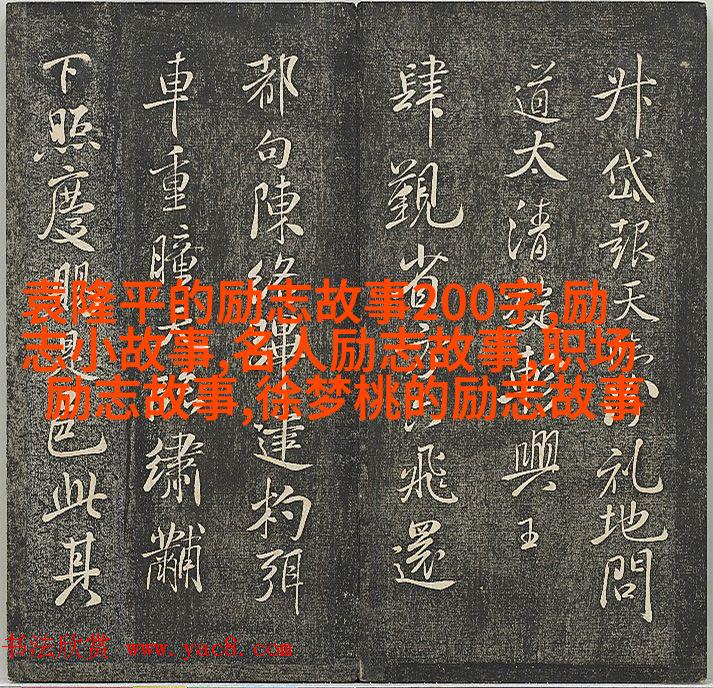 升岱報天礼地問
道太清旋興王
肆覲省方飛還
都句陳絡建杓弭
車重瞳繡黼
下照慶邑此其
袁隆平的励志故事200字,励
志小故事,名人励志故事,职场
励志故事,徐梦桃的励志故事
书法欣赏 www.yac8.com